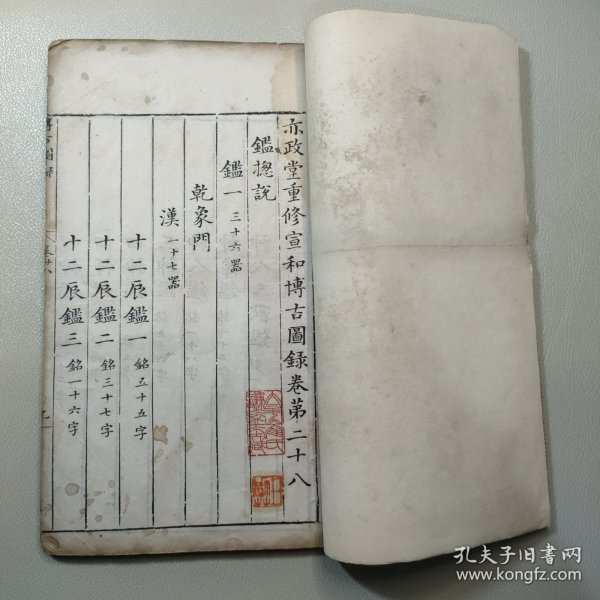 亦政堂重修宣和博古圖錄卷第二十八
鑑揔說
鑑一 三十六器
乾象門
漢 一十七器
十二辰鑑一 銘五十五字
十二辰鑑二 銘三十七字
十二辰鑑三 銘一十六字
博古圖錄
孔夫子旧书网
www.kongfz.com